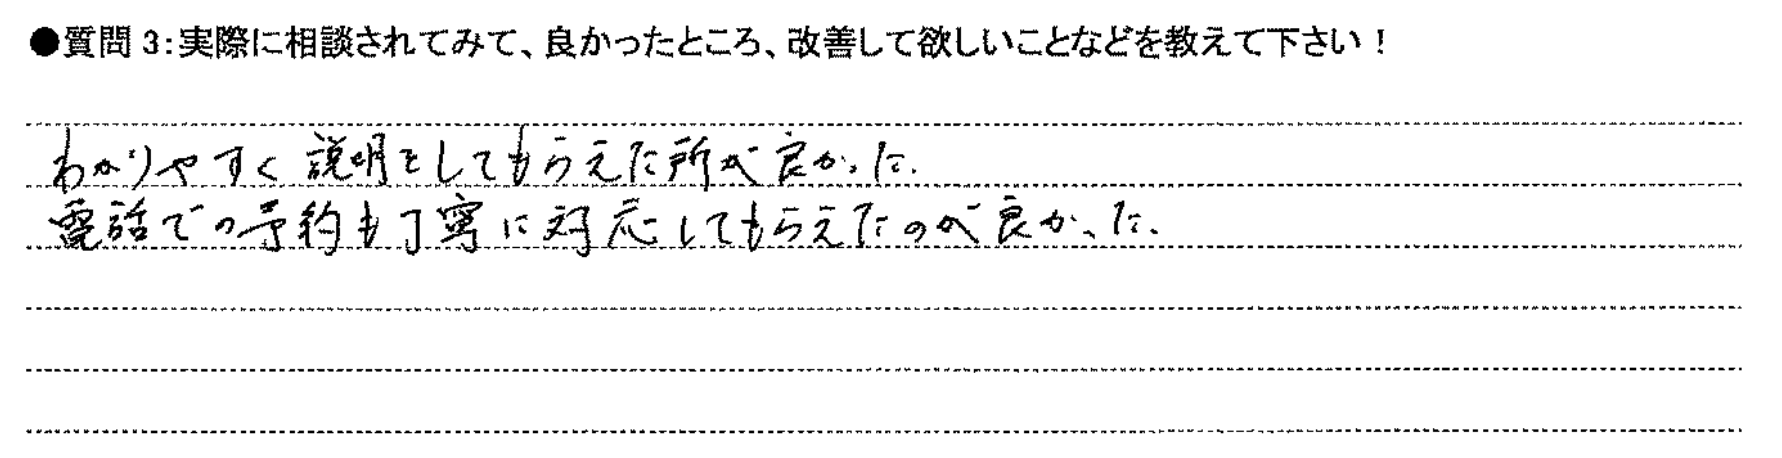 ●質問3:実際に相談されてみて、良かったところ、改善して欲しいことなどを教えて下さい！
わかりやすく説明をしてもらえた所が良かった.
電話での予約も丁寧に対応してもらえたのが良かった.